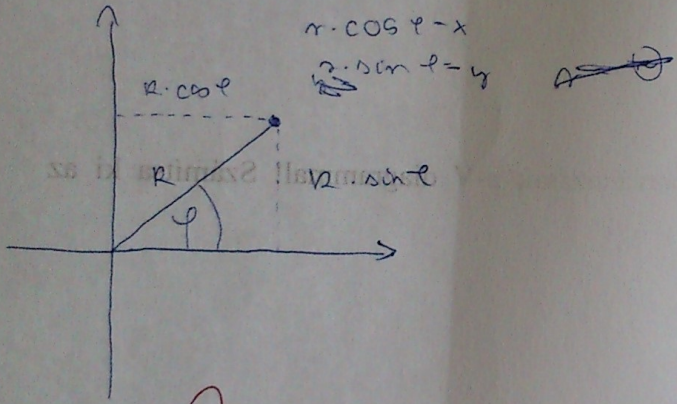 r·cos φ-x
r·sin φ=y
R·cosφ
R
R·sinφ
φ